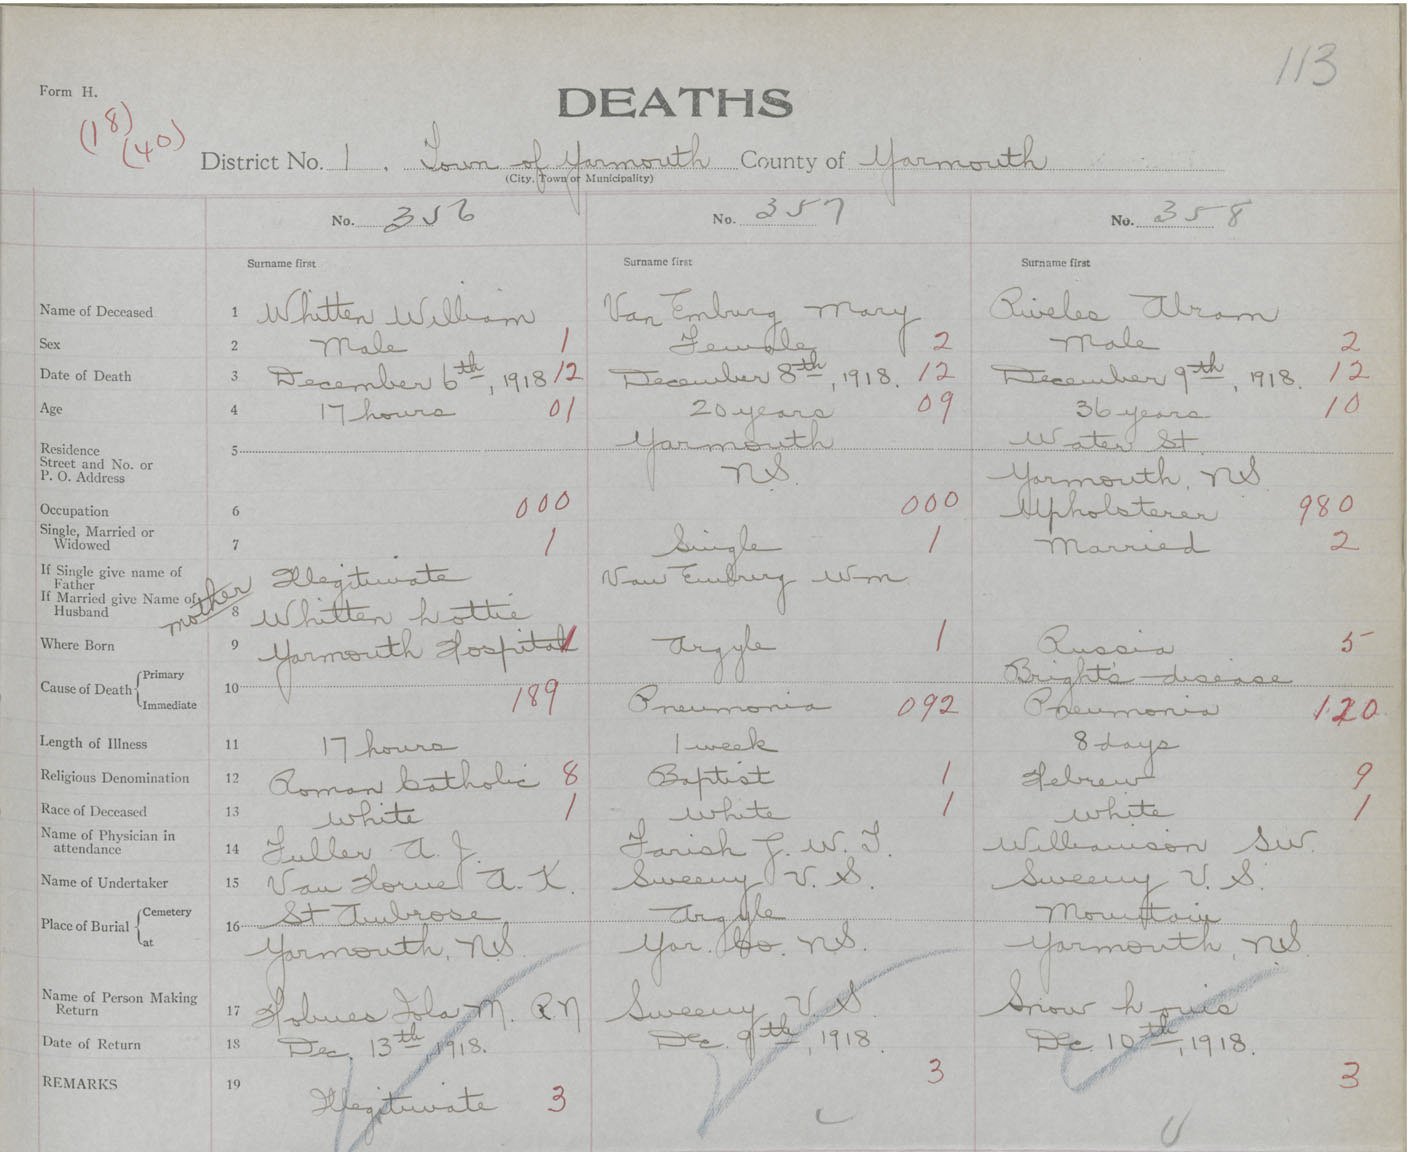 113
Form H.
DEATHS
(18)
(40)
District No. 1. Town of Yarmouth County of Yarmouth
(City, Town or Municipality)
No. 356 No. 357 No. 358
Surname first Surname first Surname first
Name of Deceased 1 Whitten William Van Emburg Mary Riveles Abram
Sex 2 Male 1 Female 2 Male 2
Date of Death 3 December 6th, 1918 12 December 8th, 1918. 12 December 9th, 1918. 12
Age 4 17 hours 01 20 years 09 36 years 10
Residence 5 Yarmouth Water St.
Street and No. or
P. O. Address N.S. Yarmouth, N.S.
Occupation 6 000 000 Upholsterer 980
Single, Married or
Widowed 7 1 Single 1 Married 2
If Single give name of
Father Illegitimate Van Emburg Wm
If Married give Name of
Husband mother 8 Whitten Lottie
Where Born 9 Yarmouth Hospital 1 Argyle 1 Russia 5
Cause of Death Primary 10 Bright's disease
Immediate 189 Pneumonia 092 Pneumonia 120
Length of Illness 11 17 hours 1 week 8 days
Religious Denomination 12 Roman Catholic 8 Baptist 1 Hebrew 9
Race of Deceased 13 White 1 White 1 White 1
Name of Physician in
attendance 14 Fuller A. J. Farish J. W. T. Williamson S.W.
Name of Undertaker 15 Van Horne A. K. Sweeny V. S. Sweeny V. S.
Place of Burial Cemetery 16 St Ambrose Argyle Mountain
at Yarmouth, N.S. Yar. Co. N.S. Yarmouth, N.S.
Name of Person Making
Return 17 Holmes Iola M. R N Sweeny V. S. Snow Louis
Date of Return 18 Dec. 13th, 1918. Dec. 9th, 1918. Dec. 10th, 1918.
REMARKS 19 Illegitimate 3 3 3